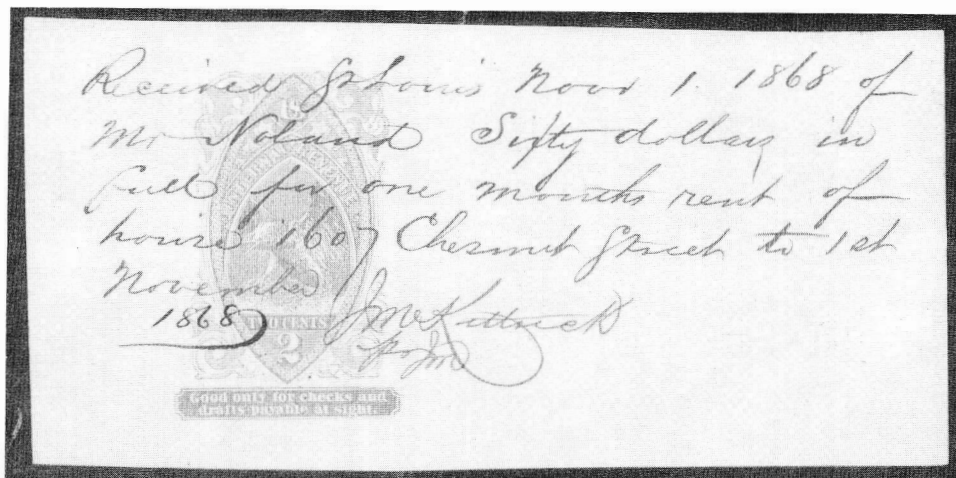 Received St Louis Novr 1. 1868 of
Mr Noland Sixty dollars in
full for one months rent of
house 1607 Chesnut Street to 1st
November
1868 J McKittrick
TWO CENTS
2
Good only for checks and
drafts payable at sight.